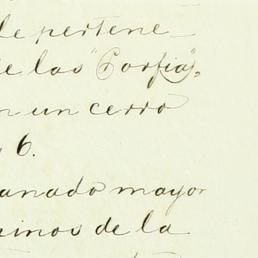 le pertene_
e las "Corfia",
n un cerro
6.
anado mayor
inos de la